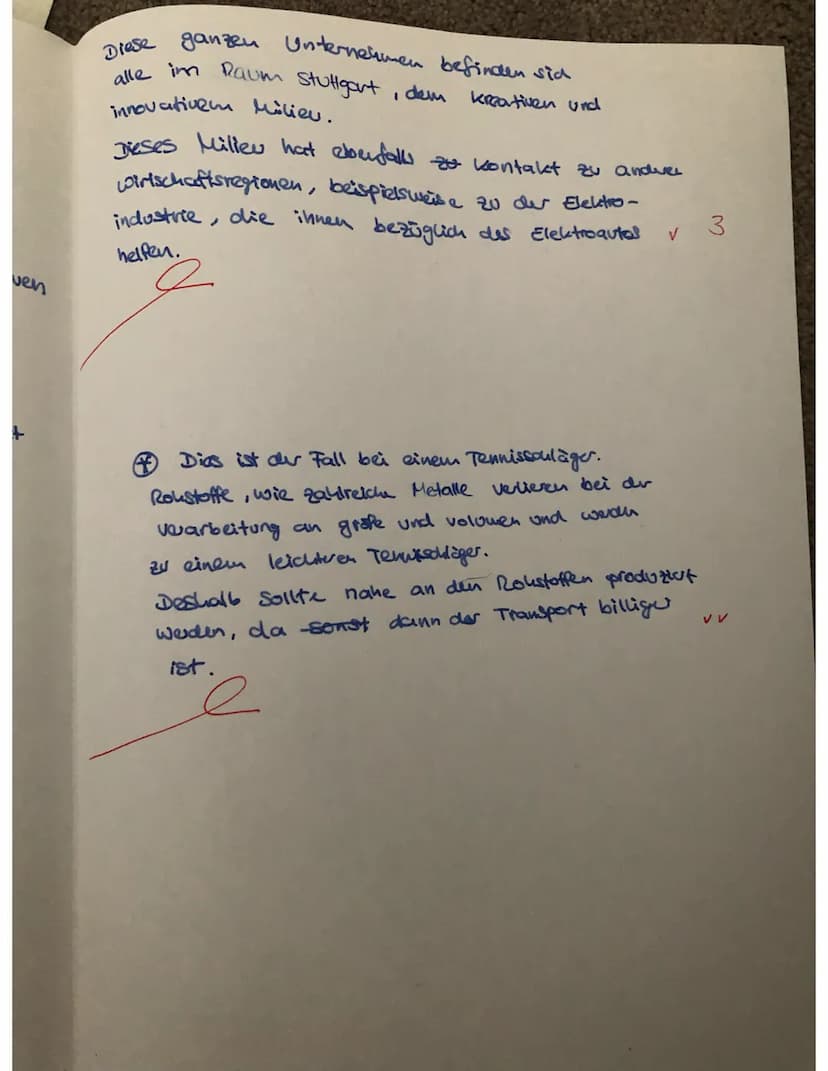 Diese ganzen Unternehmen befinden sich
alle im Raum Stuttgart, dem kreativen und
innovativem Milieu.
Dieses Milieu hat ebenfalls zu Kontakt zu andere
Wirtschaftsregionen, beispielsweise zu der Elektro-
industrie, die ihnen bezüglich des Elektroautos v 3
helfen.
ven
t
* Dies ist der Fall bei einem Tennisschläger.
Rohstoffe, wie zahlreiche Metalle verlieren bei der
Verarbeitung an größe und volumen und werden
zu einem leichteren Tennisschläger.
Deshalb sollte nahe an den Rohstoffen produziert
werden, da sonst dann der Transport billiger vv
ist.